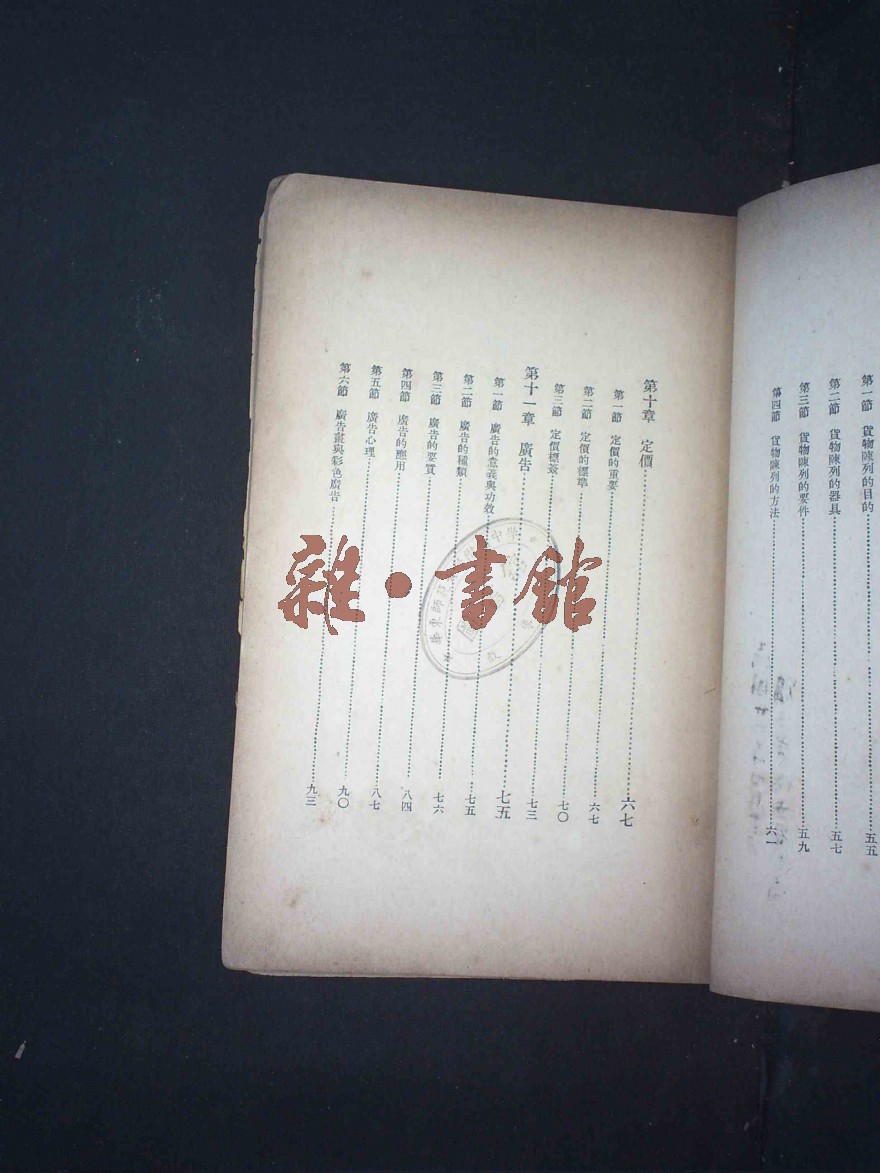 第一節　貨物陳列的目的……五五
第二節　貨物陳列的器具……五七
第三節　貨物陳列的要件……五九
第四節　貨物陳列的方法……六一
第十章　定價……六七
第一節　定價的重要……六七
第二節　定價的標準……七〇
第三節　定價標簽……七三
第十一章　廣告……七五
第一節　廣告的意義與功效……七五
第二節　廣告的種類……七六
第三節　廣告的要質……八四
第四節　廣告的應用……八七
第五節　廣告心理……九〇
第六節　廣告畫與彩色廣告……九三
雜·書館